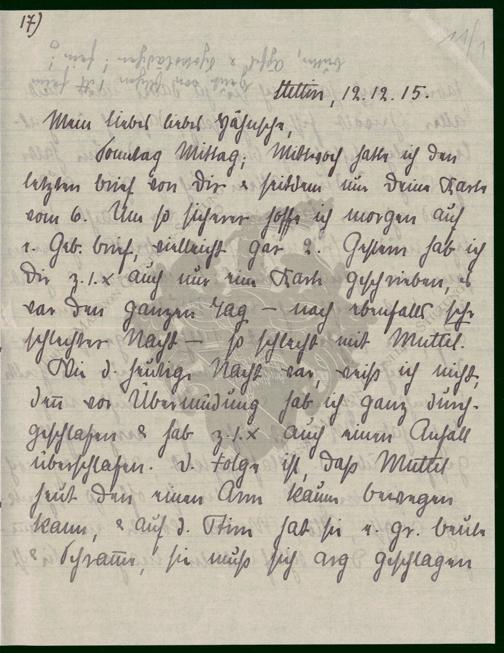 17)
Stettin, 12.12.15.
Mein liebes liebes
Sonntag Mittag; Mittwoch hatte ich den
letzten brief von Dir & seitdem nur Deine Karte
vom 6. Um so sicherer hoffe ich morgen auf
1. Geb. brief, vielleicht gar 2. Gestern hab ich
Dir z. 1. x auch nur eine Karte geschrieben, es
war den ganzen Tag — nach ebenfalls sehr
schlechter Nacht — so schlecht mit Muttel.
Wie d. heutige Nacht war, weiß ich nicht,
deñ vor Übermüdung hab ich ganz durch-
geschlafen & hab z. 1. x auch einen Anfall
überschlafen. D. Folge ist, daß Muttel
heut den einen Arm kaum bewegen
kann, & auf d. Stirn hat sie e. gr. beule
& Schram̄e, sie muß sich arg geschlagen